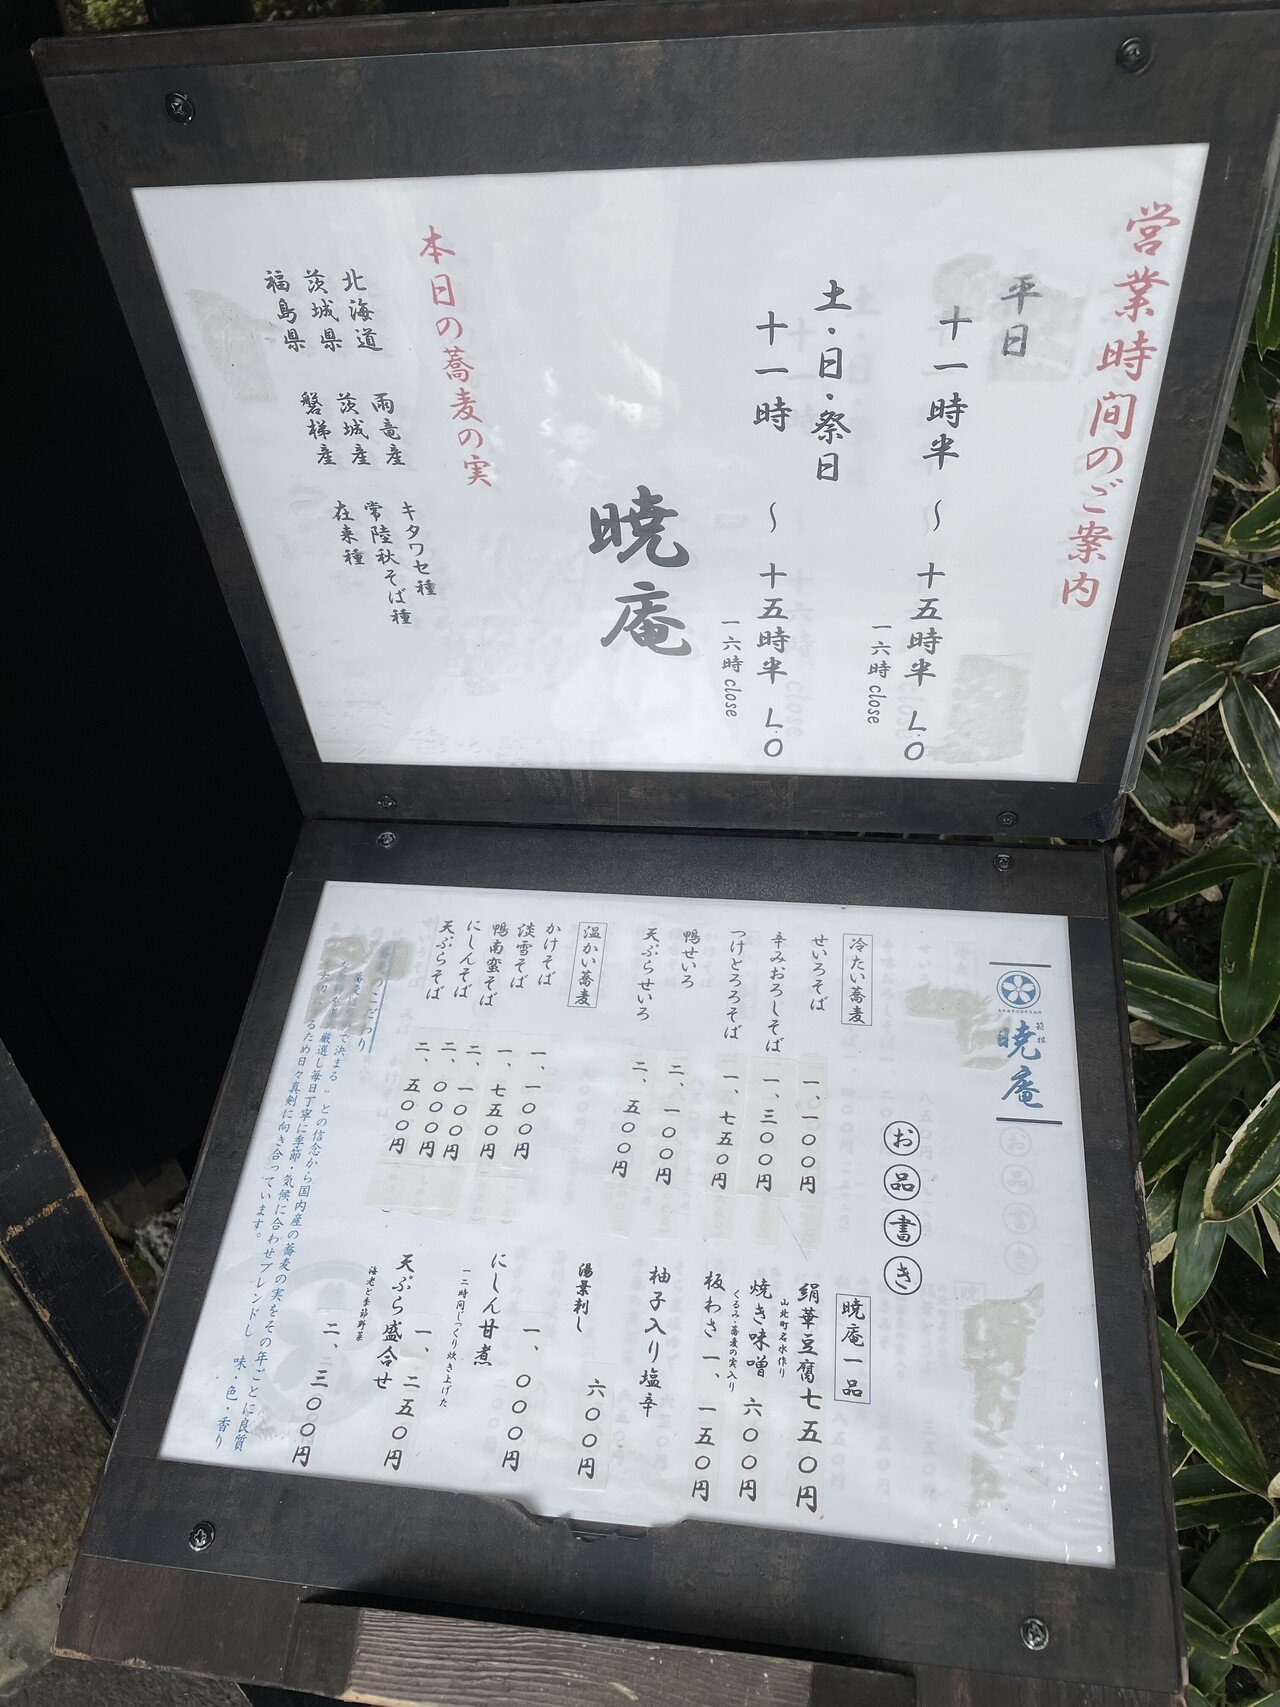 営業時間のご案内
平日
十一時半 〜 十五時半 L.O
一六時 close
土・日・祭日
十一時 〜 十五時半 L.O
一六時 close
暁庵
本日の蕎麦の実
北海道 雨竜産 キタワセ種
茨城県 茨城産 常陸秋そば種
福島県 磐梯産 在来種
AKATSUKIAN
箱根
暁庵
お品書き
冷たい蕎麦
せいろそば 一、一〇〇円
辛みおろしそば 一、三〇〇円
つけとろろそば 一、七五〇円
鴨せいろ 二、一〇〇円
天ぷらせいろ 二、五〇〇円
温かい蕎麦
かけそば 一、一〇〇円
淡雪そば 一、七五〇円
鴨南蛮そば 二、一〇〇円
にしんそば 二、〇〇〇円
天ぷらそば 二、五〇〇円
暁庵一品
絹華豆腐 七五〇円
山北町名水作り
焼き味噌 六〇〇円
くるみ・蕎麦の実入り
板わさ 一、一五〇円
柚子入り塩辛 六〇〇円
湯葉刺し 一、〇〇〇円
にしん甘煮 一、二五〇円
一二時間じっくり炊き上げた
天ぷら盛合せ 二、三〇〇円
海老と季節野菜
こだわり
で決まる〟との信念から国内産の蕎麦の実をその年ごとに良質
厳選し毎日丁寧に季節・気候に合わせブレンドし 味・色・香り
るため日々真剣に向き合っています。